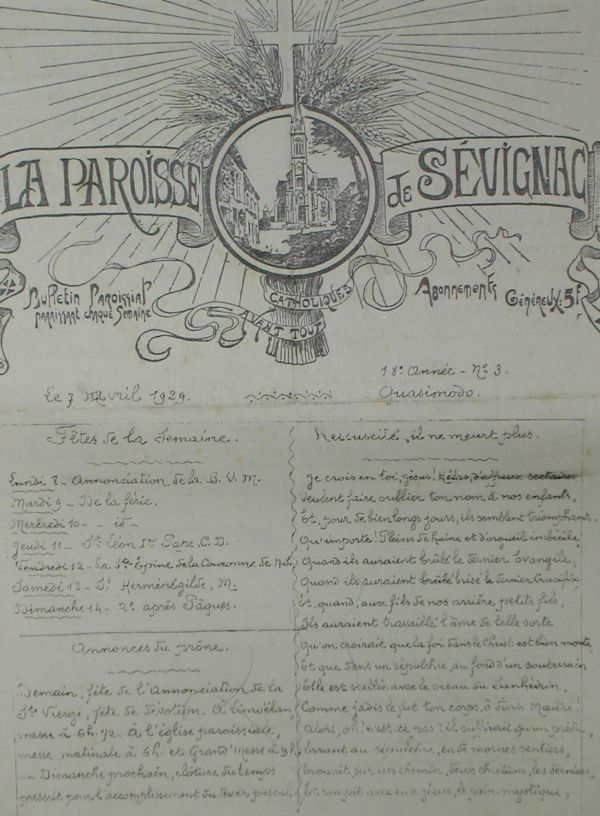 LA PAROISSE de SÉVIGNAC
Bulletin Paroissial
paraissant chaque Semaine
CATHOLIQUES
AVANT TOUT
Abonnements
Généreux: 5F.
Le 7 Avril 1929.
18e Année - No 3.
Quasimodo.
Fêtes de la Semaine.
Lundi 8 - Annonciation de la B. V. M.
Mardi 9 - De la férie.
Mercredi 10 - - id -
Jeudi 11 - St Léon Ier Pape, C. D.
Vendredi 12 - La Ste Epine de la Couronne de
Samedi 13 - St Herménégilde, M.
Dimanche 14 - 2e après Pâques.
Annonces du prône.
Demain, fête de l'Annonciation de la
Ste Vierge, fête de dévotion. A Limoëlan,
messe à 6h. 1/2. A l'église paroissiale,
messe matinale à 6h. et Grand'Messe à 9h.
Dimanche prochain, clôture du temps
prescrit pour l'accomplissement du devoir pascal
Ressuscité, il ne meurt plus.
Je crois en toi, Jésus! Hélas, d'affreux sectaires
Veulent faire oublier ton nom à nos enfants,
Et, pour de bien longs jours, ils semblent triomphants.
Qu'importe! Pleins de haine et d'orgueil imbécile
Quand ils auraient brûlé le dernier Evangile,
Quand ils auraient brûlé brisé le dernier Crucifix,
Et, quand, aux fils de nos arrière, petits fils,
Ils auraient travaillé l'âme de telle sorte
Qu'on croirait que la foi dans le Christ est bien morte
Et que dans un sépulchre, au fond d'un souterrain
Elle est scellée avec le sceau du Sanhédrin,
Comme jadis le fut ton corps, ô divin Maître!
Alors, oh! n'est-ce pas? il suffirait qu'un prêtre,
Errant au sépulchre, en de mornes sentiers,
trouvât, sur un chemin, deux chrétiens, les derniers,
Et rompît avec eux, Jésus, le pain mystique,